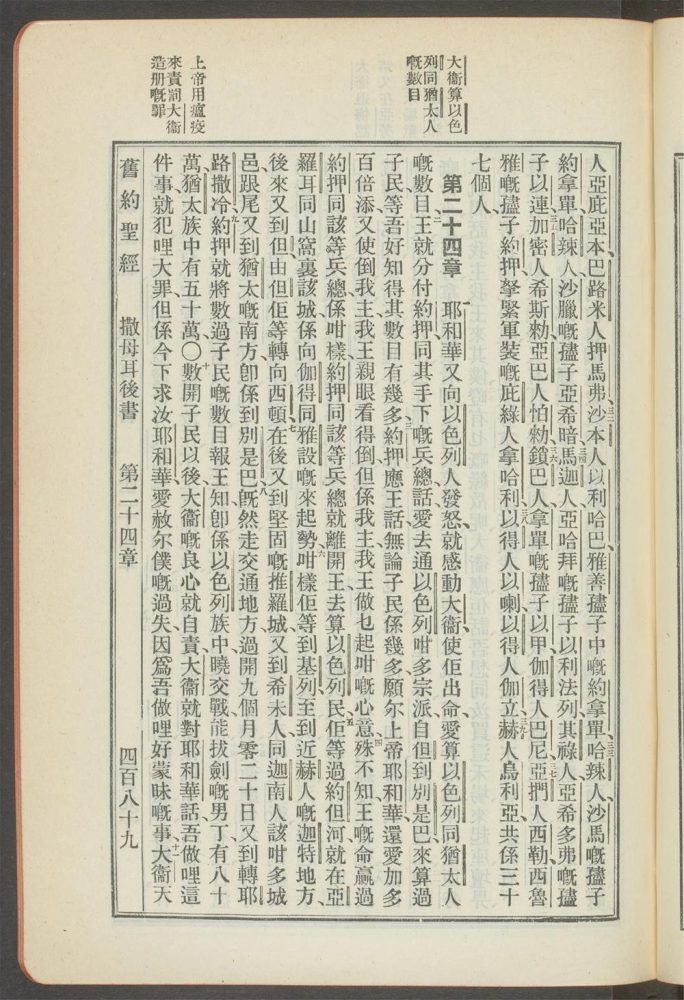 大衞算以色
列同猶太人
嘅數目
上帝用瘟疫
來責罰大衞
造册嘅罪
人亞庇亞本巴路米人押馬弗、沙本人以利哈巴、雅善孻子中嘅約拿單、哈辣人、沙馬嘅孻子
約拿單、哈辣人、沙臘嘅孻子亞希暗、馬迦人、亞哈拜嘅孻子以利法列、其祿人亞希多弗嘅孻
子以連、加密人希斯勑、亞巴人怕勑、鎖巴人、拿單嘅孻子以甲、伽得人巴尼、亞捫人西勒、西魯
雅嘅孻子約押、拏緊軍裝嘅庇綠人拿哈利、以得人以喇、以得人伽立、赫人烏利亞、共係三十
七個人、
第二十四章 一耶和華又向以色列人發怒、就感動大衞、使佢出命、愛算以色列同猶太人
嘅數目、二王就分付約押、同其手下嘅兵總話、愛去通以色列咁多宗派、自但到別是巴、來算過
子民等、吾好知得其數目有幾多、三約押應王話、無論子民係幾多、願尔上帝耶和華還愛加多
百倍添、又使倒我主我王親眼看得倒、但係我主我王做乜起咁嘅心意、四殊不知王嘅命贏過
約押、同該等兵總、係咁樣、約押同該等兵總就離開王、去算以色列民、五佢等過約但河、就在亞
羅耳、同山窩裏該城、係向伽得、同雅設嘅、來起勢、六咁樣佢等到基列、至到近赫人嘅迦特地方、
後來又到但由但佢等轉向西頓、七在後又到堅固嘅推羅城、又到希未人、同迦南人該咁多城
邑、跟尾又到猶太嘅南方、卽係到別是巴、八旣然走交通地方、過開九個月零二十日、又到轉耶
路撒冷、九約押就將數過子民嘅數目報王知、卽係以色列族中、曉交戰、能拔劍嘅男丁有八十
萬、猶太族中有五十萬、〇十數開子民以後、大衞嘅良心就自責、大衞就對耶和華話、吾做哩這
件事、就犯哩大罪、但係今下求汝耶和華、愛赦尔僕嘅過失、因爲吾做哩好蒙昧嘅事、十一大衞天
舊約聖經 撒母耳後書 第二十四章 四百八十九